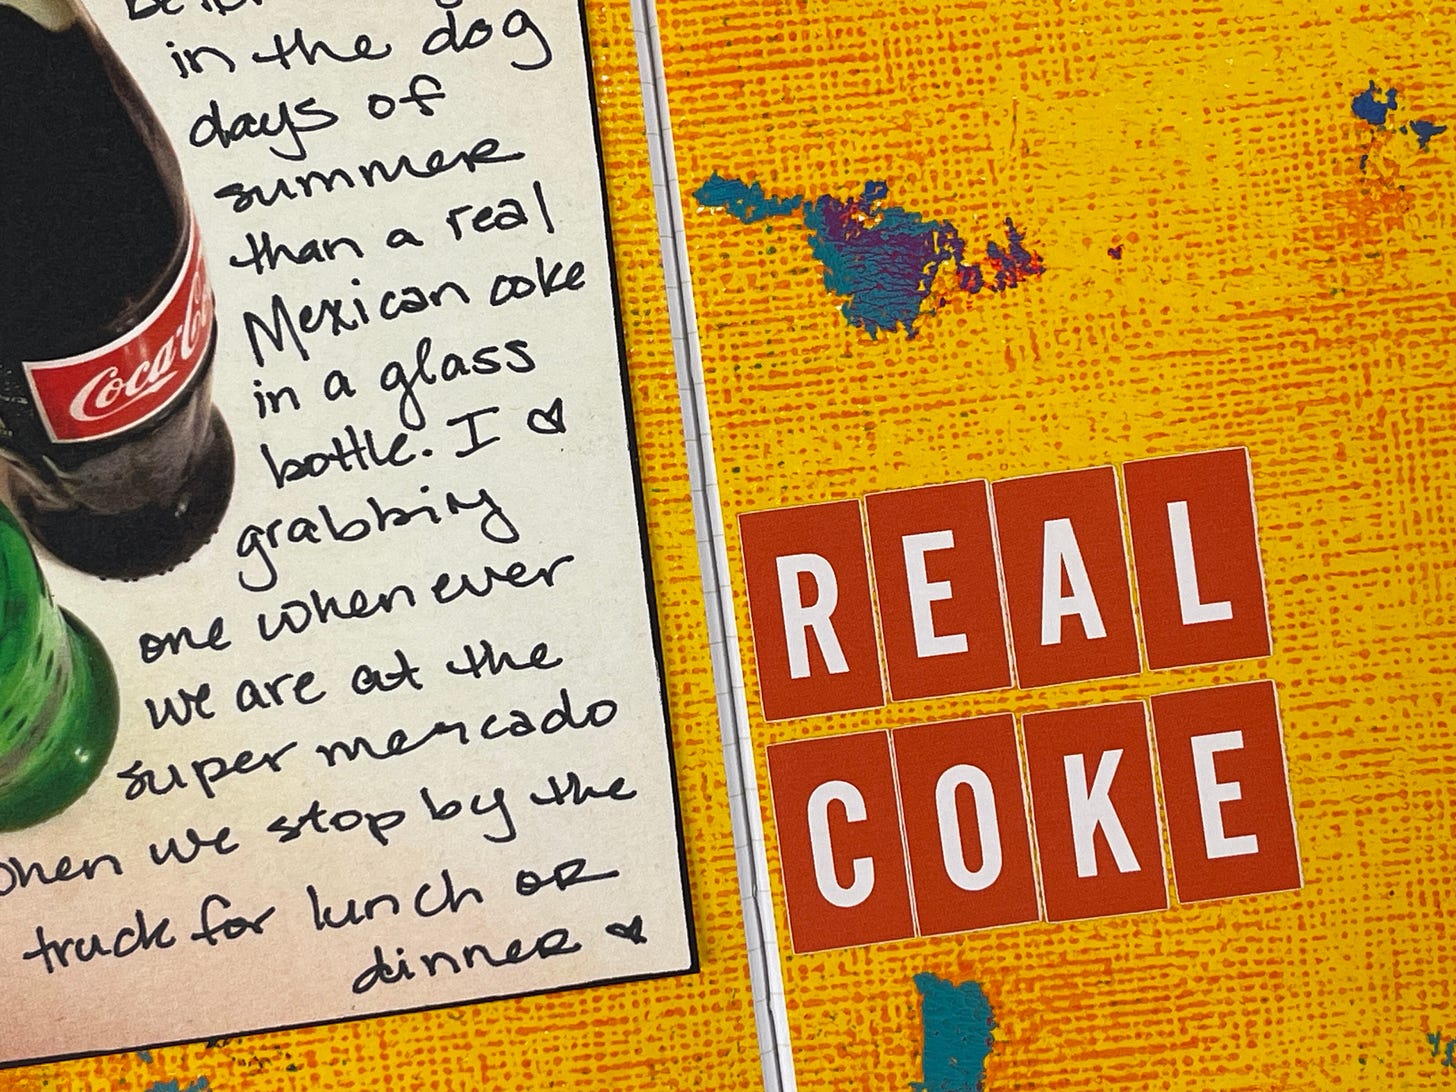 in the dog
days of
summer
than a real
Mexican coke
in a glass
bottle. I ♡
grabbing
one when ever
we are at the
super mercado
when we stop by the
truck for lunch or
dinner ♥
Coca-Co
REAL
COKE